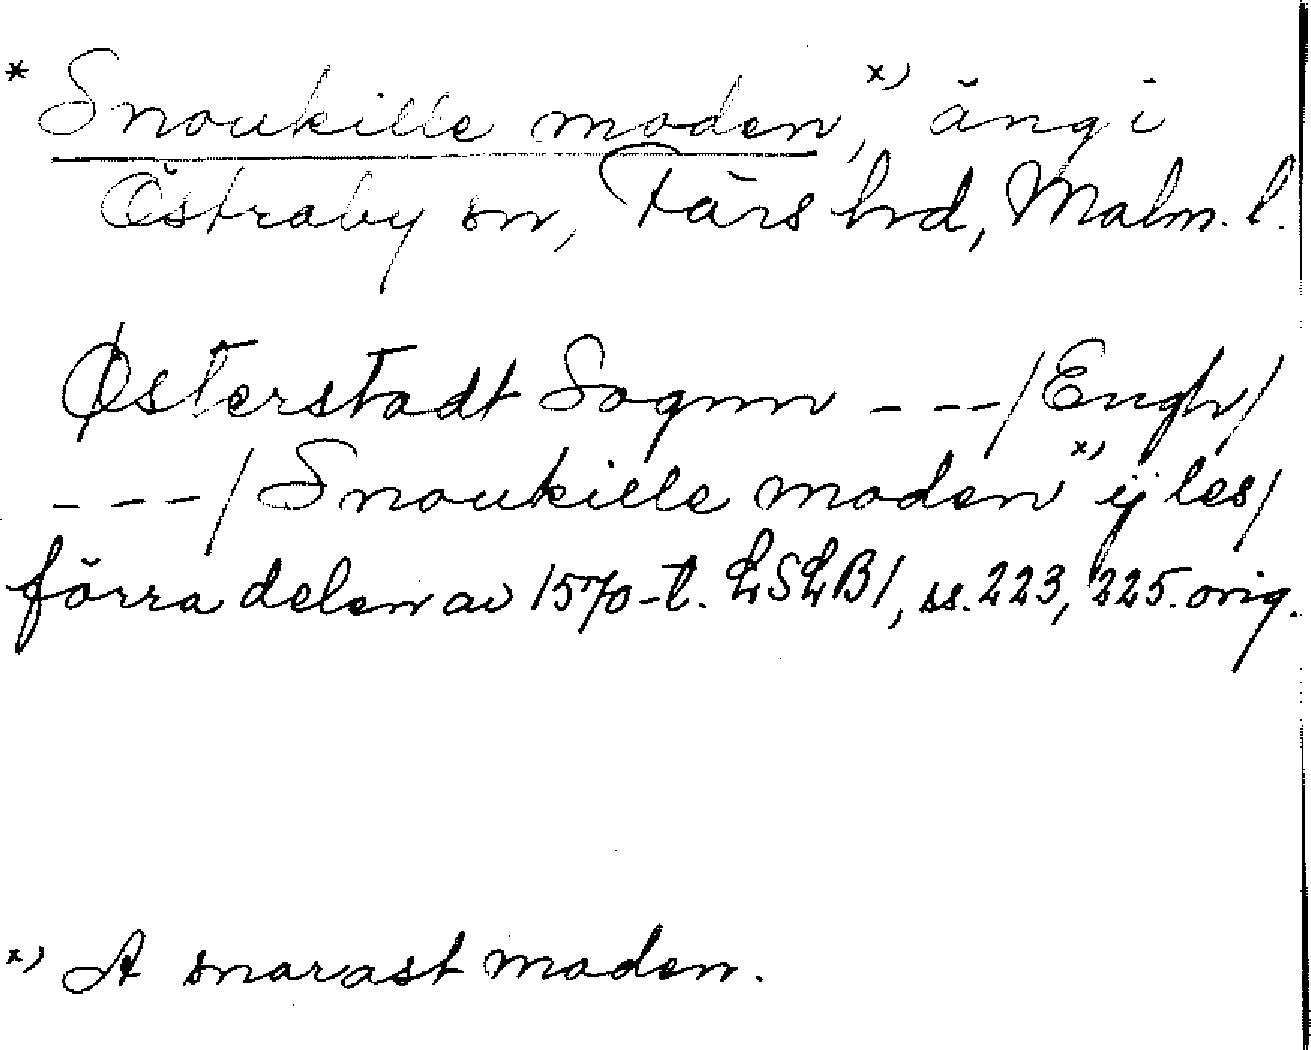 * Snoukille moden, x) äng i
Östraby sn, Färs hrd, Malm. l.
Østerstadt Sognn - - - / Engh /
- - - / Snoukille moden x) ij les /
förra delen av 1570-t. LSLB1, ss. 223, 225. orig.
x) A snarast maden.